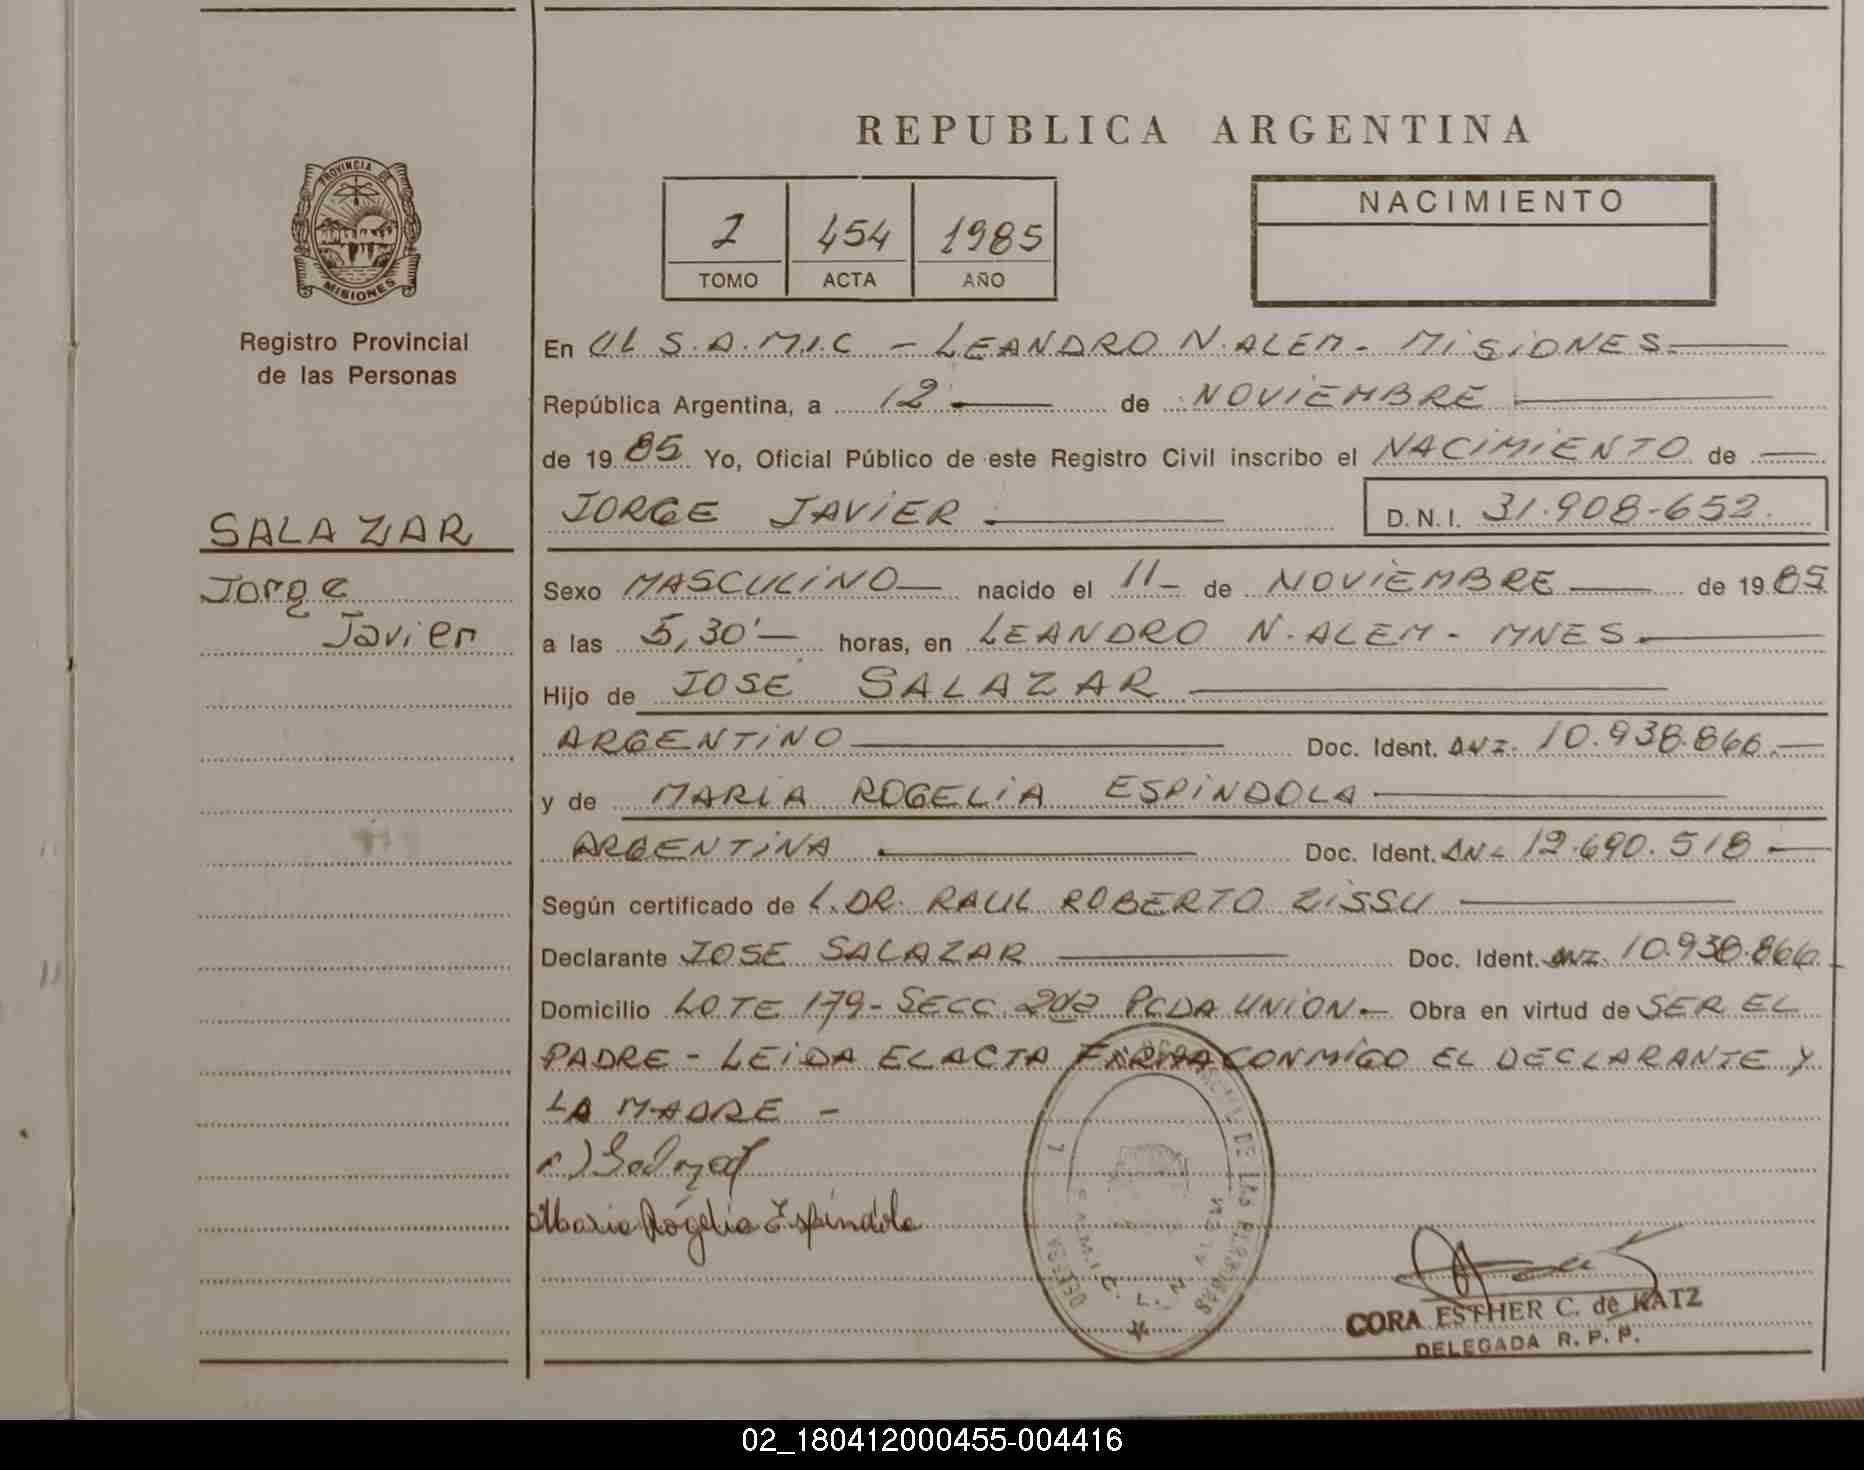 REPUBLICA ARGENTINA
PROVINCIA DE
MISIONES
Registro Provincial
de las Personas
454 1985
TOMO ACTA AÑO
NACIMIENTO
En S.A.M.I.C - LEANDRO N. ALEM - MISIONES
República Argentina, a 12 de NOVIEMBRE
de 1985 Yo, Oficial Público de este Registro Civil inscribo el NACIMIENTO de
JORGE JAVIER D.N.I. 31.908.652
SALAZAR
Jorge
Javier
Sexo MASCULINO nacido el 11 de NOVIEMBRE de 1985
a las 5,30' horas, en LEANDRO N. ALEM - MNES
Hijo de JOSE SALAZAR
ARGENTINO Doc. Ident. 10.938.866
y de MARIA ROGELIA ESPINDOLA
ARGENTINA Doc. Ident. 12.690.518
Según certificado de DR. RAUL ROBERTO ZISSU
Declarante JOSE SALAZAR Doc. Ident. 10.938.866
Domicilio LOTE 179 - SECC. 2da PCDA UNION Obra en virtud de SER EL
PADRE - LEIDA EL ACTA FIRMA CONMIGO EL DECLARANTE Y
LA MADRE -
Maria Rogelia Espindola
CORA ESTHER C. de KATZ
DELEGADA R. P. P.
02_180412000455-004416